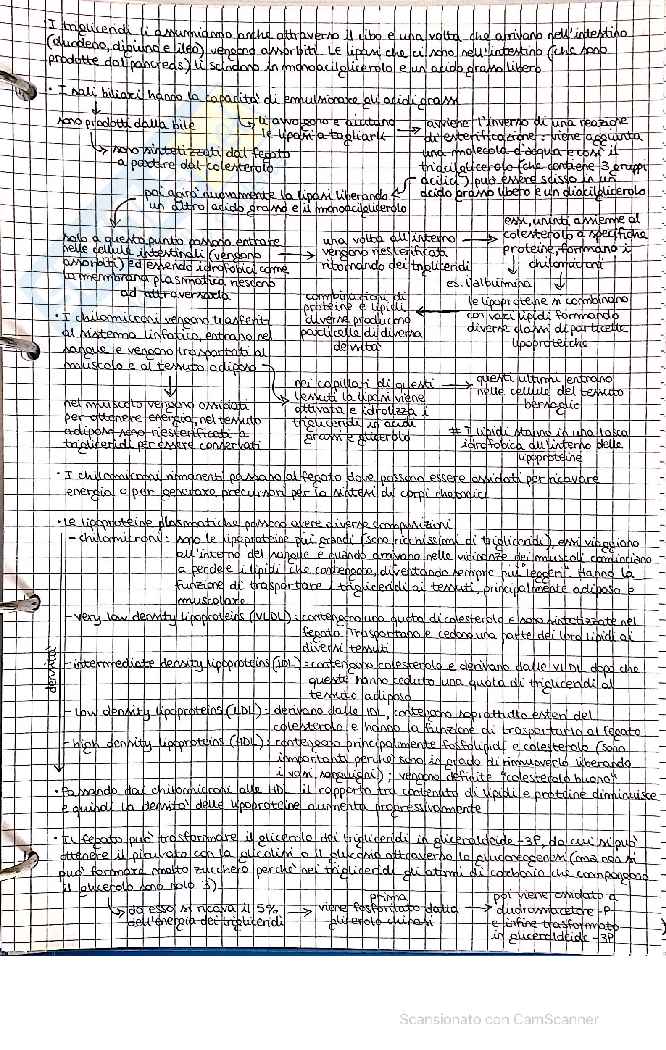 · I trigliceridi li assumiamo anche attraverso il cibo e una volta che arrivano nell'intestino
(duodeno, digiuno e ileo) vengono assorbiti. Le lipasi che ci sono nell'intestino (che sono
prodotte dal pancreas) li scindono in monoacilglicerolo e un acido grasso libero
· I sali biliari hanno la capacità di emulsionare gli acidi grassi
sono prodotti dalla bile
li avvolgono e aiutano
le lipasi a tagliarli
avviene l'inverso di una reazione
di esterificazione: viene aggiunta
una molecola d'acqua e così il
triacilglicerolo (che contiene 3 gruppi
acilici) può essere scisso in un
acido grasso libero e un diacilglicerolo
sono sintetizzati dal fegato
a partire dal colesterolo
poi agirà nuovamente la lipasi liberando
un altro acido grasso e il monoacilglicerolo
solo a questo punto possono entrare
nelle cellule intestinali (vengono
assorbiti) ed essendo idrofobici come
la membrana plasmatica riescono
ad attraversarla
una volta all'interno
vengono riesterificati
ritornando dei trigliceridi
essi, uniti assieme al
colesterolo a specifiche
proteine, formano i
chilomicroni
es. l'albumina
le lipoproteine si combinano
con vari lipidi formando
diverse classi di particelle
lipoproteiche
combinazioni di
proteine e lipidi
diverse producono
particelle di diversa
densità
· I chilomicroni vengono trasferiti
al sistema linfatico, entrano nel
sangue e vengono trasportati al
muscolo e al tessuto adiposo
nel muscolo vengono ossidati
per ottenere energia, nel tessuto
adiposo sono riesterificati a
trigliceridi per essere conservati
nei capillari di questi
tessuti la lipasi viene
attivata e idrolizza i
trigliceridi in acidi
grassi e glicerolo
questi ultimi entrano
nelle cellule del tessuto
bersaglio
# I lipidi stanno in una tasca
idrofobica all'interno delle
lipoproteine
· I chilomicroni rimanenti passano al fegato dove possono essere ossidati per ricavare
energia o per generare precursori per la sintesi di corpi chetonici
· Le lipoproteine plasmatiche possono avere diverse composizioni
densità
- chilomicroni: sono le lipoproteine più grandi (sono ricchissimi di trigliceridi), essi viaggiano
all'interno del sangue e quando arrivano nelle vicinanze dei muscoli cominciano
a perdere i lipidi che contengono, diventando sempre più "leggeri". Hanno la
funzione di trasportare i trigliceridi ai tessuti, principalmente adiposo e
muscolare
- very low density lipoproteins (VLDL): contengono una quota di colesterolo e sono sintetizzate nel
fegato. Trasportano e cedono una parte dei loro lipidi ai
diversi tessuti
- intermediate density lipoproteins (IDL): contengono colesterolo e derivano dalle VLDL dopo che
queste hanno ceduto una quota di trigliceridi al
tessuto adiposo
- low density lipoproteins (LDL): derivano dalle IDL, contengono soprattutto esteri del
colesterolo e hanno la funzione di trasportarlo al fegato
- high density lipoproteins (HDL): contengono principalmente fosfolipidi e colesterolo (sono
importanti perché sono in grado di rimuoverlo liberando
i vasi sanguigni); vengono definite "colesterolo buono"
· Passando dai chilomicroni alle HDL il rapporto tra contenuto di lipidi e proteine diminuisce
e quindi la densità delle lipoproteine aumenta progressivamente
· Il fegato può trasformare il glicerolo dei trigliceridi in gliceraldeide-3P, da cui si può
ottenere il piruvato con la glicolisi o il glucosio attraverso la gluconeogenesi (ma non si
può formare molto zucchero perché nei trigliceridi gli atomi di carbonio che compongono
il glicerolo sono solo 3)
da esso si ricava il 5%
dell'energia dei trigliceridi
prima
viene fosforilato dalla
glicerolo chinasi
poi viene ossidato a
diidrossiacetone-P
e infine trasformato
in gliceraldeide-3P
Scansionato con CamScanner